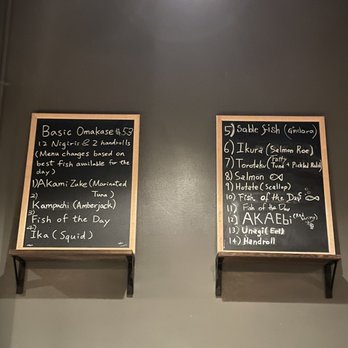 Basic Omakase $53
12 Nigiris & 2 handrolls
(Menu changes based on
best fish available for the
day)
1) Akami Zuke (Marinated
Tuna)
2)
Kampachi (Amberjack)
3)
Fish of the Day
4)
Ika (Squid)
5) Sable fish (Gindara)
6) Ikura (Salmon Roe)
7) Torotaku (Fatty
Tuna + Pickled
8) Salmon
9) Hotate (Scallop)
10) Fish of the Day
11) Fish of the Day
12) AKAEbi
13) Unagi (Eel)
14) Handroll